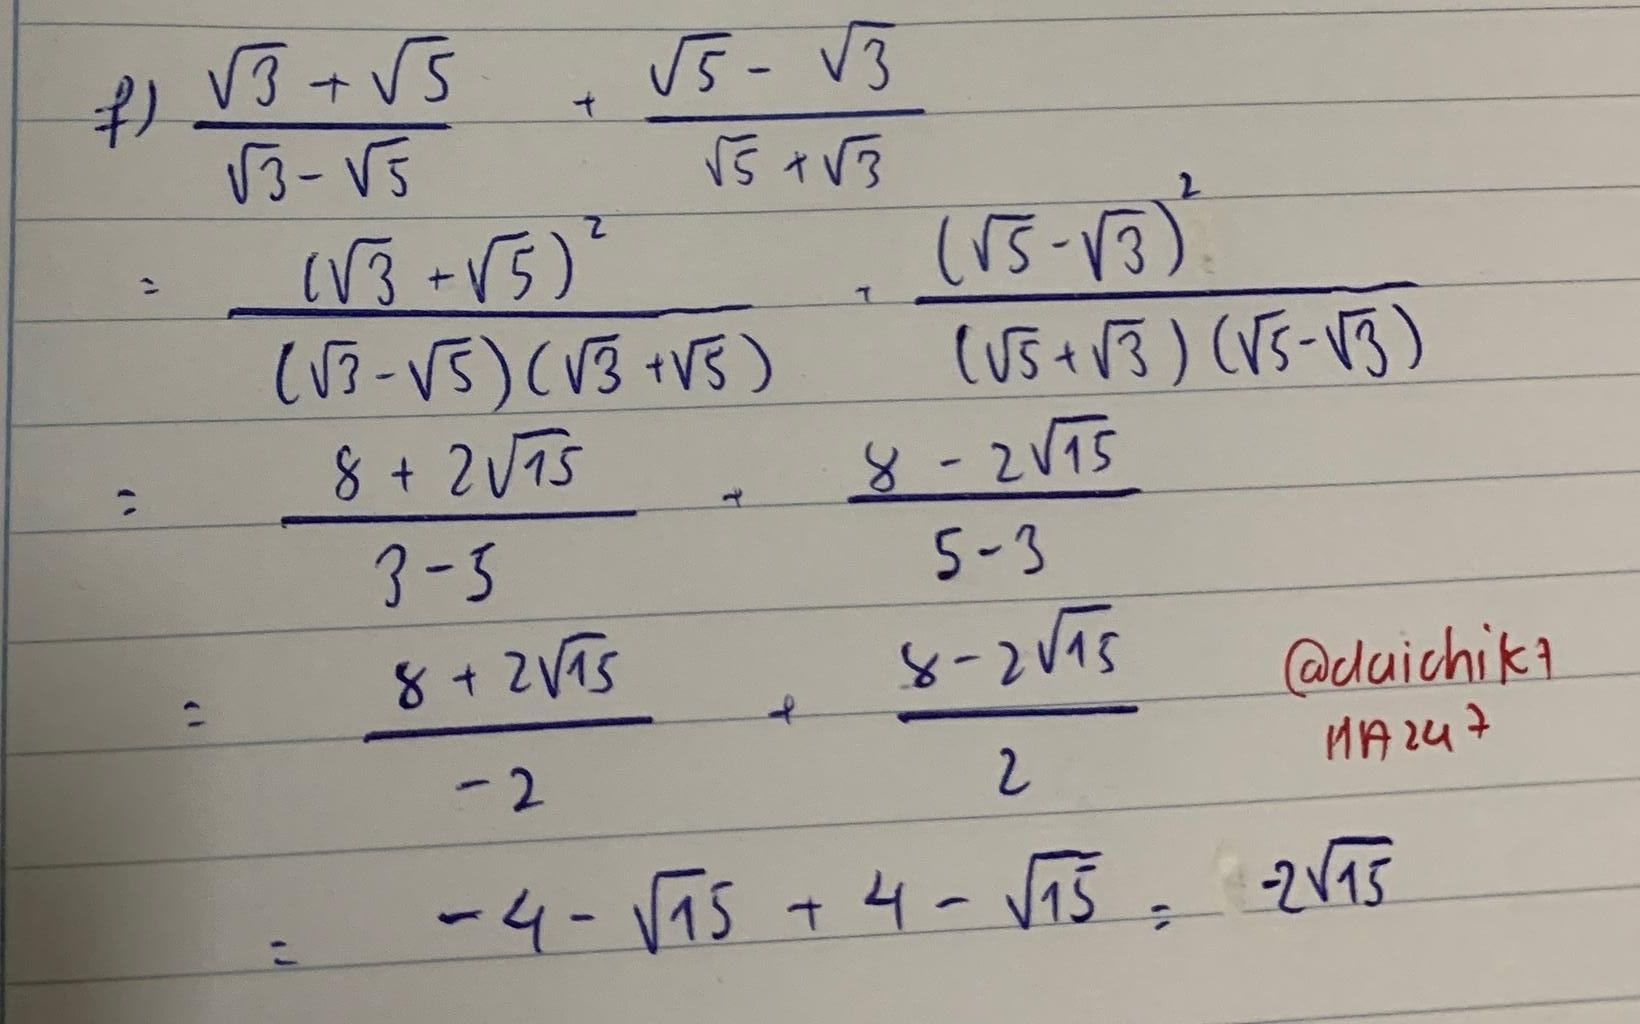 f) (√3 + √5)/(√3 - √5) + (√5 - √3)/(√5 + √3)
= (√3 + √5)²/((√3 - √5)(√3 + √5)) + (√5 - √3)²/((√5 + √3)(√5 - √3))
= (8 + 2√15)/(3 - 5) + (8 - 2√15)/(5 - 3)
= (8 + 2√15)/(-2) + (8 - 2√15)/2
@daichik7
MA247
= -4 - √15 + 4 - √15 = -2√15